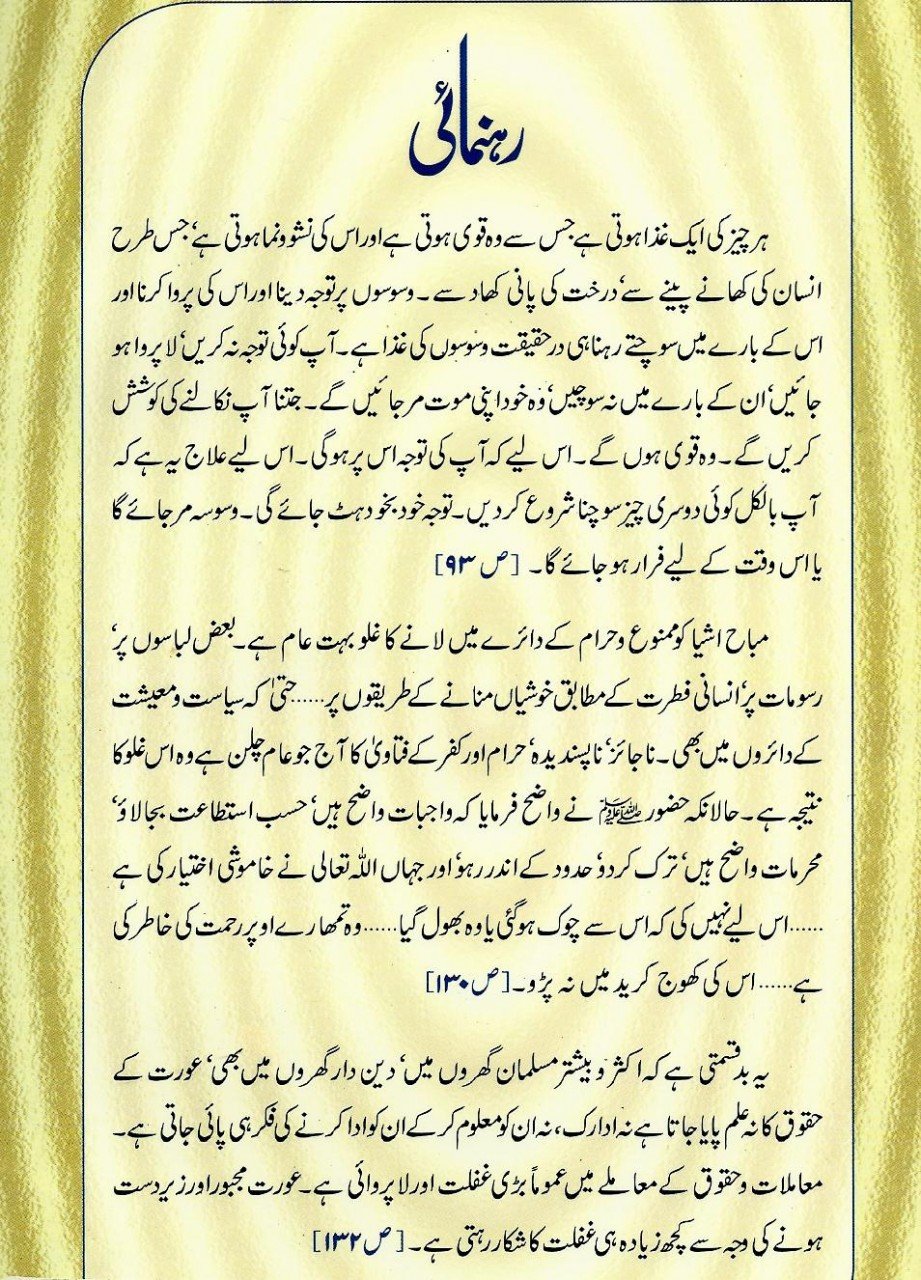 رہنمائی
ہر چیز کی ایک غذا ہوتی ہے جس سے وہ قوی ہوتی ہے اور اس کی نشوونما ہوتی ہے‘ جس طرح
انسان کی کھانے پینے سے‘ درخت کی پانی کھاد سے۔ وسوسوں پر توجہ دینا اور اس کی پروا کرنا اور
اس کے بارے میں سوچتے رہنا ہی درحقیقت وسوسوں کی غذا ہے۔ آپ کوئی توجہ نہ کریں‘ لاپروا ہو
جائیں‘ ان کے بارے میں نہ سوچیں‘ وہ خود اپنی موت مر جائیں گے۔ جتنا آپ نکالنے کی کوشش
کریں گے۔ وہ قوی ہوں گے۔ اس لیے کہ آپ کی توجہ اس پر ہوگی۔ اس لیے علاج یہ ہے کہ
آپ بالکل کوئی دوسری چیز سوچنا شروع کر دیں۔ توجہ خود بخود ہٹ جائے گی۔ وسوسہ مر جائے گا
یا اس وقت کے لیے فرار ہو جائے گا۔ [ص ۹۳]
مباح اشیا کو ممنوع و حرام کے دائرے میں لانے کا غلو بہت عام ہے۔ بعض لباسوں پر‘
رسومات پر‘ انسانی فطرت کے مطابق خوشیاں منانے کے طریقوں پر......حتیٰ کہ سیاست و معیشت
کے دائروں میں بھی۔ ناجائز‘ ناپسندیدہ‘ حرام اور کفر کے فتاویٰ کا آج جو عام چلن ہے وہ اس غلو کا
نتیجہ ہے۔ حالانکہ حضور ﷺ نے واضح فرمایا کہ واجبات واضح ہیں‘ حسب استطاعت بجا لاؤ‘
محرمات واضح ہیں‘ ترک کر دو‘ حدود کے اندر رہو‘ اور جہاں اللہ تعالی نے خاموشی اختیار کی ہے
......اس لیے نہیں کی کہ اس سے چوک ہوگئی یا وہ بھول گیا......وہ تمھارے اوپر رحمت کی خاطر کی
ہے......اس کی کھوج کرید میں نہ پڑو۔ [ص ۱۳۰]
یہ بدقسمتی ہے کہ اکثر و بیشتر مسلمان گھروں میں‘ دین دار گھروں میں بھی‘ عورت کے
حقوق کا نہ علم پایا جاتا ہے نہ ادارک، نہ ان کو معلوم کر کے ان کو ادا کرنے کی فکر ہی پائی جاتی ہے۔
معاملات و حقوق کے معاملے میں عموماً بڑی غفلت اور لاپروائی ہے۔ عورت مجبور اور زیردست
ہونے کی وجہ سے کچھ زیادہ ہی غفلت کا شکار رہتی ہے۔ [ص ۱۳۲]